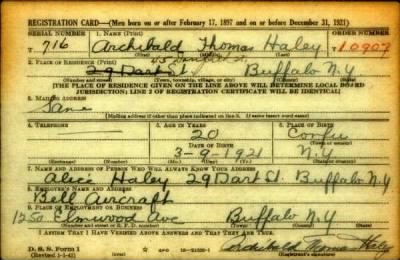 REGISTRATION CARD—(Men born on or after February 17, 1897 and on or before December 31, 1921)
SERIAL NUMBER 1. NAME (Print) ORDER NUMBER
T 716 Archibald Thomas Haley 10907
2. PLACE OF RESIDENCE (Print)
29 Dart St. Buffalo N.Y
(Number and street) (Town, township, village, or city) (County) (State)
[THE PLACE OF RESIDENCE GIVEN ON THE LINE ABOVE WILL DETERMINE LOCAL BOARD
JURISDICTION; LINE 2 OF REGISTRATION CERTIFICATE WILL BE IDENTICAL]
3. MAILING ADDRESS
Same
[Mailing address if other than place indicated on line 2. If same insert word same]
4. TELEPHONE 5. AGE IN YEARS 6. PLACE OF BIRTH
20
DATE OF BIRTH
3-9-1921 N.Y
(Exchange) (Number) (Mo.) (Day) (Yr.) (State or country)
7. NAME AND ADDRESS OF PERSON WHO WILL ALWAYS KNOW YOUR ADDRESS
Alice Haley 29 Dart St. Buffalo N.Y
8. EMPLOYER'S NAME AND ADDRESS
Bell Aircraft
9. PLACE OF EMPLOYMENT OR BUSINESS
1250 Elmwood Ave Buffalo N.Y
(Number and street or R. F. D. number) (Town) (County) (State)
I AFFIRM THAT I HAVE VERIFIED ABOVE ANSWERS AND THAT THEY ARE TRUE.
D. S. S. Form 1 Archibald Thomas Haley
(Revised 1-1-42) (Registrant's signature)